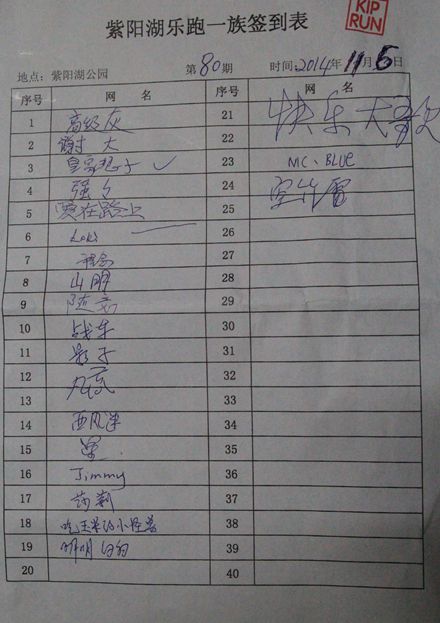 KIP
RUN
紫阳湖乐跑一族签到表
地点：紫阳湖公园 第80期 时间：2014年11月6日
序号 网 名 序号 网 名
1 高级灰 21 快乐大哥
2 谢大 22
3 23 MC、BLUE
4 强 24
5 要在路上 25
6 Loki 26
7 27
8 山明 28
9 随意 29
10 战车 30
11 影子 31
12 32
13 33
14 西风漂 34
15 35
16 Jimmy 36
17 莎莉 37
18 吃玉米的小怪兽 38
19 明明白白 39
20 40